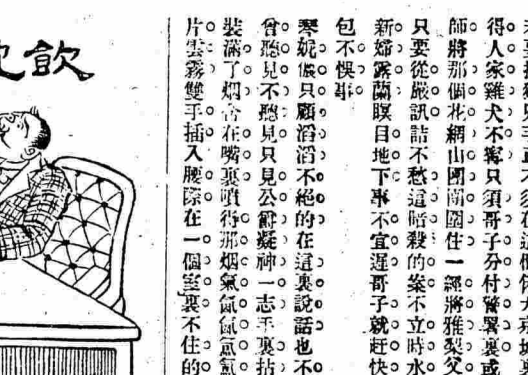 得人家雞犬不寧只須哥子分付警署裏或
師將那個花網山團團圍住一經將雅梨父
只要從嚴訊詰不愁這暗殺的案不立時水
新婦露蘭瞑目地下事不宜遲哥子就赶快
包不悞事
琴妮儂只顧滔滔不絕的在這裏說話也不
曾聽見不聽見只見公爵凝神一志手裏拈
裝滿了烟合在嘴裏噴得那烟氣氤氤氳氳
片雲霧雙手插入腰際在一個室裏不住的
飲